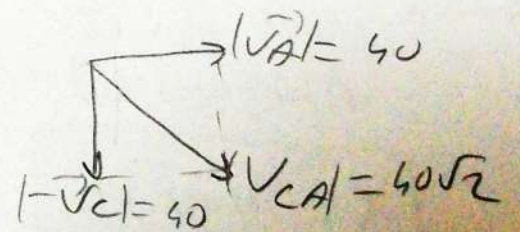 |V⃗A| = 40
|-V⃗C| = 40
|VCA| = 40√2